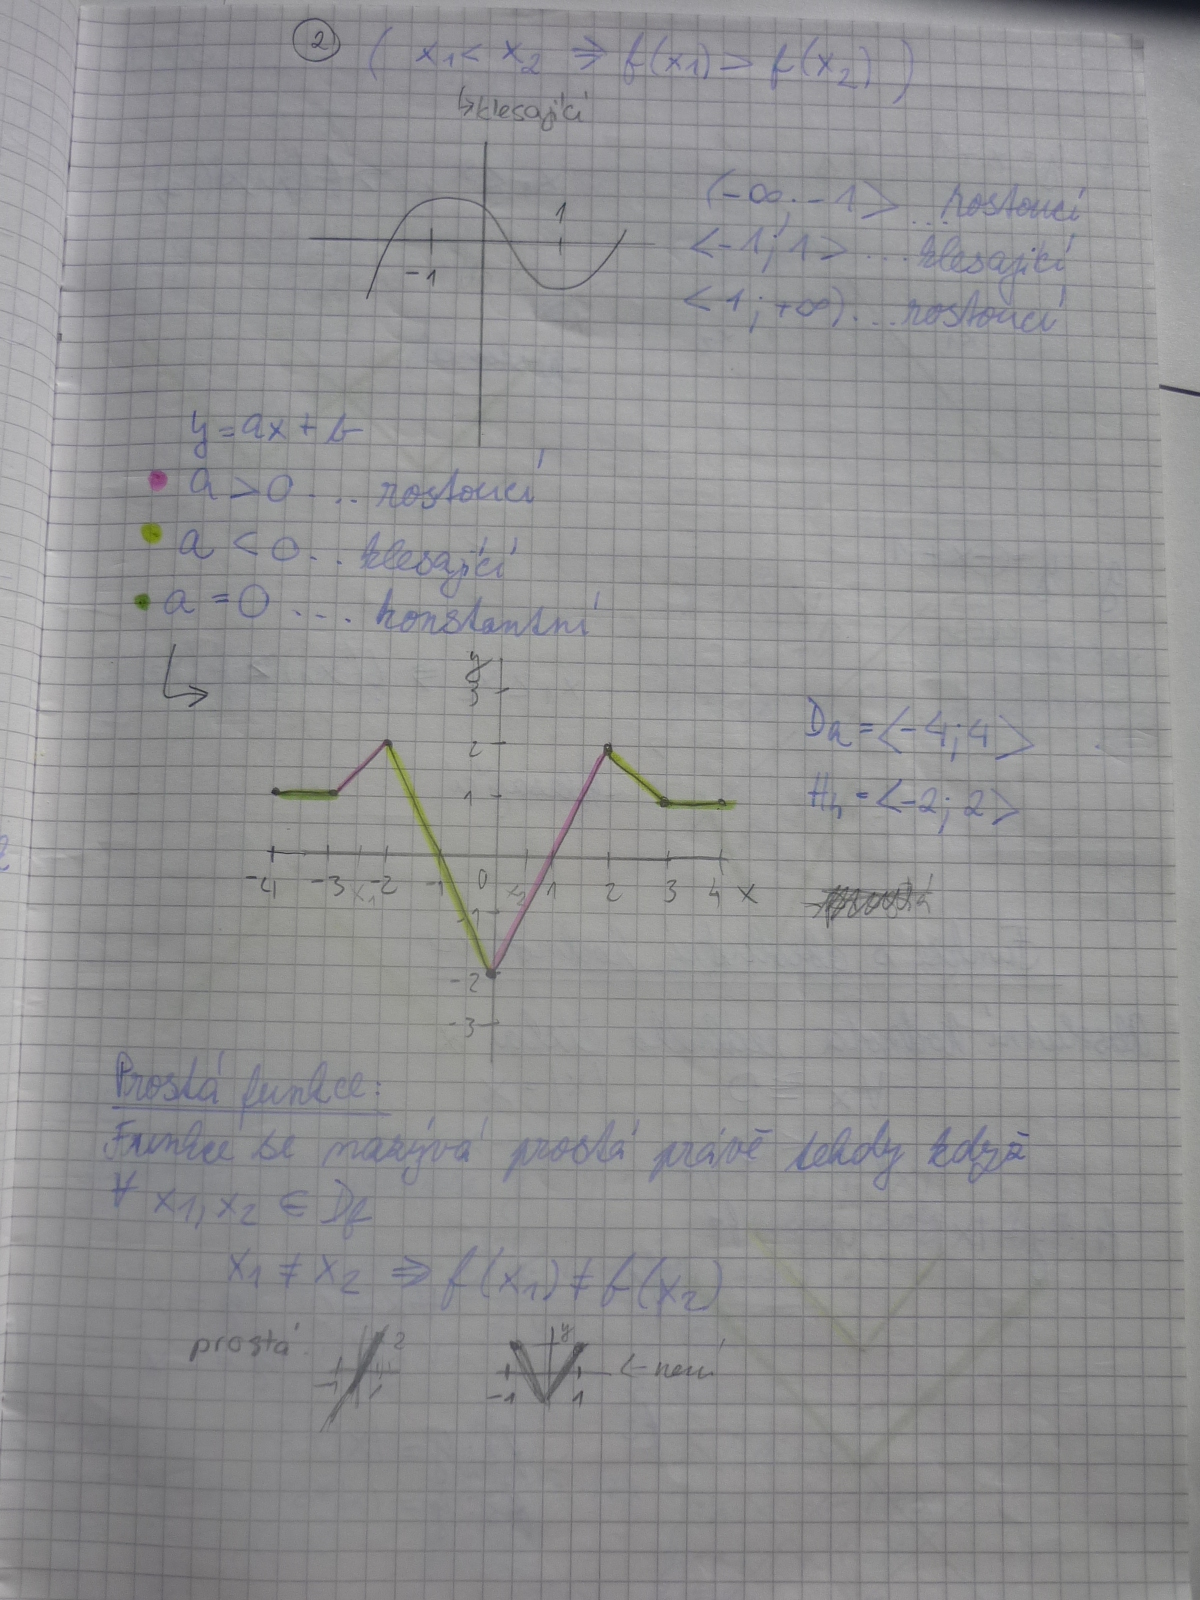 2 ( x₁ < x₂ ⇒ f(x₁) > f(x₂) )
↳ klesající
(-∞; -1> ... rostoucí
<-1; 1> ... klesající
<1; +∞) ... rostoucí
1
-1
y = ax + b
a > 0 ... rostoucí
a < 0 ... klesající
a = 0 ... konstantní
y
3
2
1
-4 -3 x₁ -2 -1 0 x₂ 1 2 3 4 x
-1
-2
-3
Dh = <-4; 4>
Hh = <-2; 2>
Prostá funkce:
Funkce se nazývá prostá právě tehdy když
∀ x₁, x₂ ∈ Df
x₁ ≠ x₂ ⇒ f(x₁) ≠ f(x₂)
prostá
2
-1 1
y
-1 1
← není